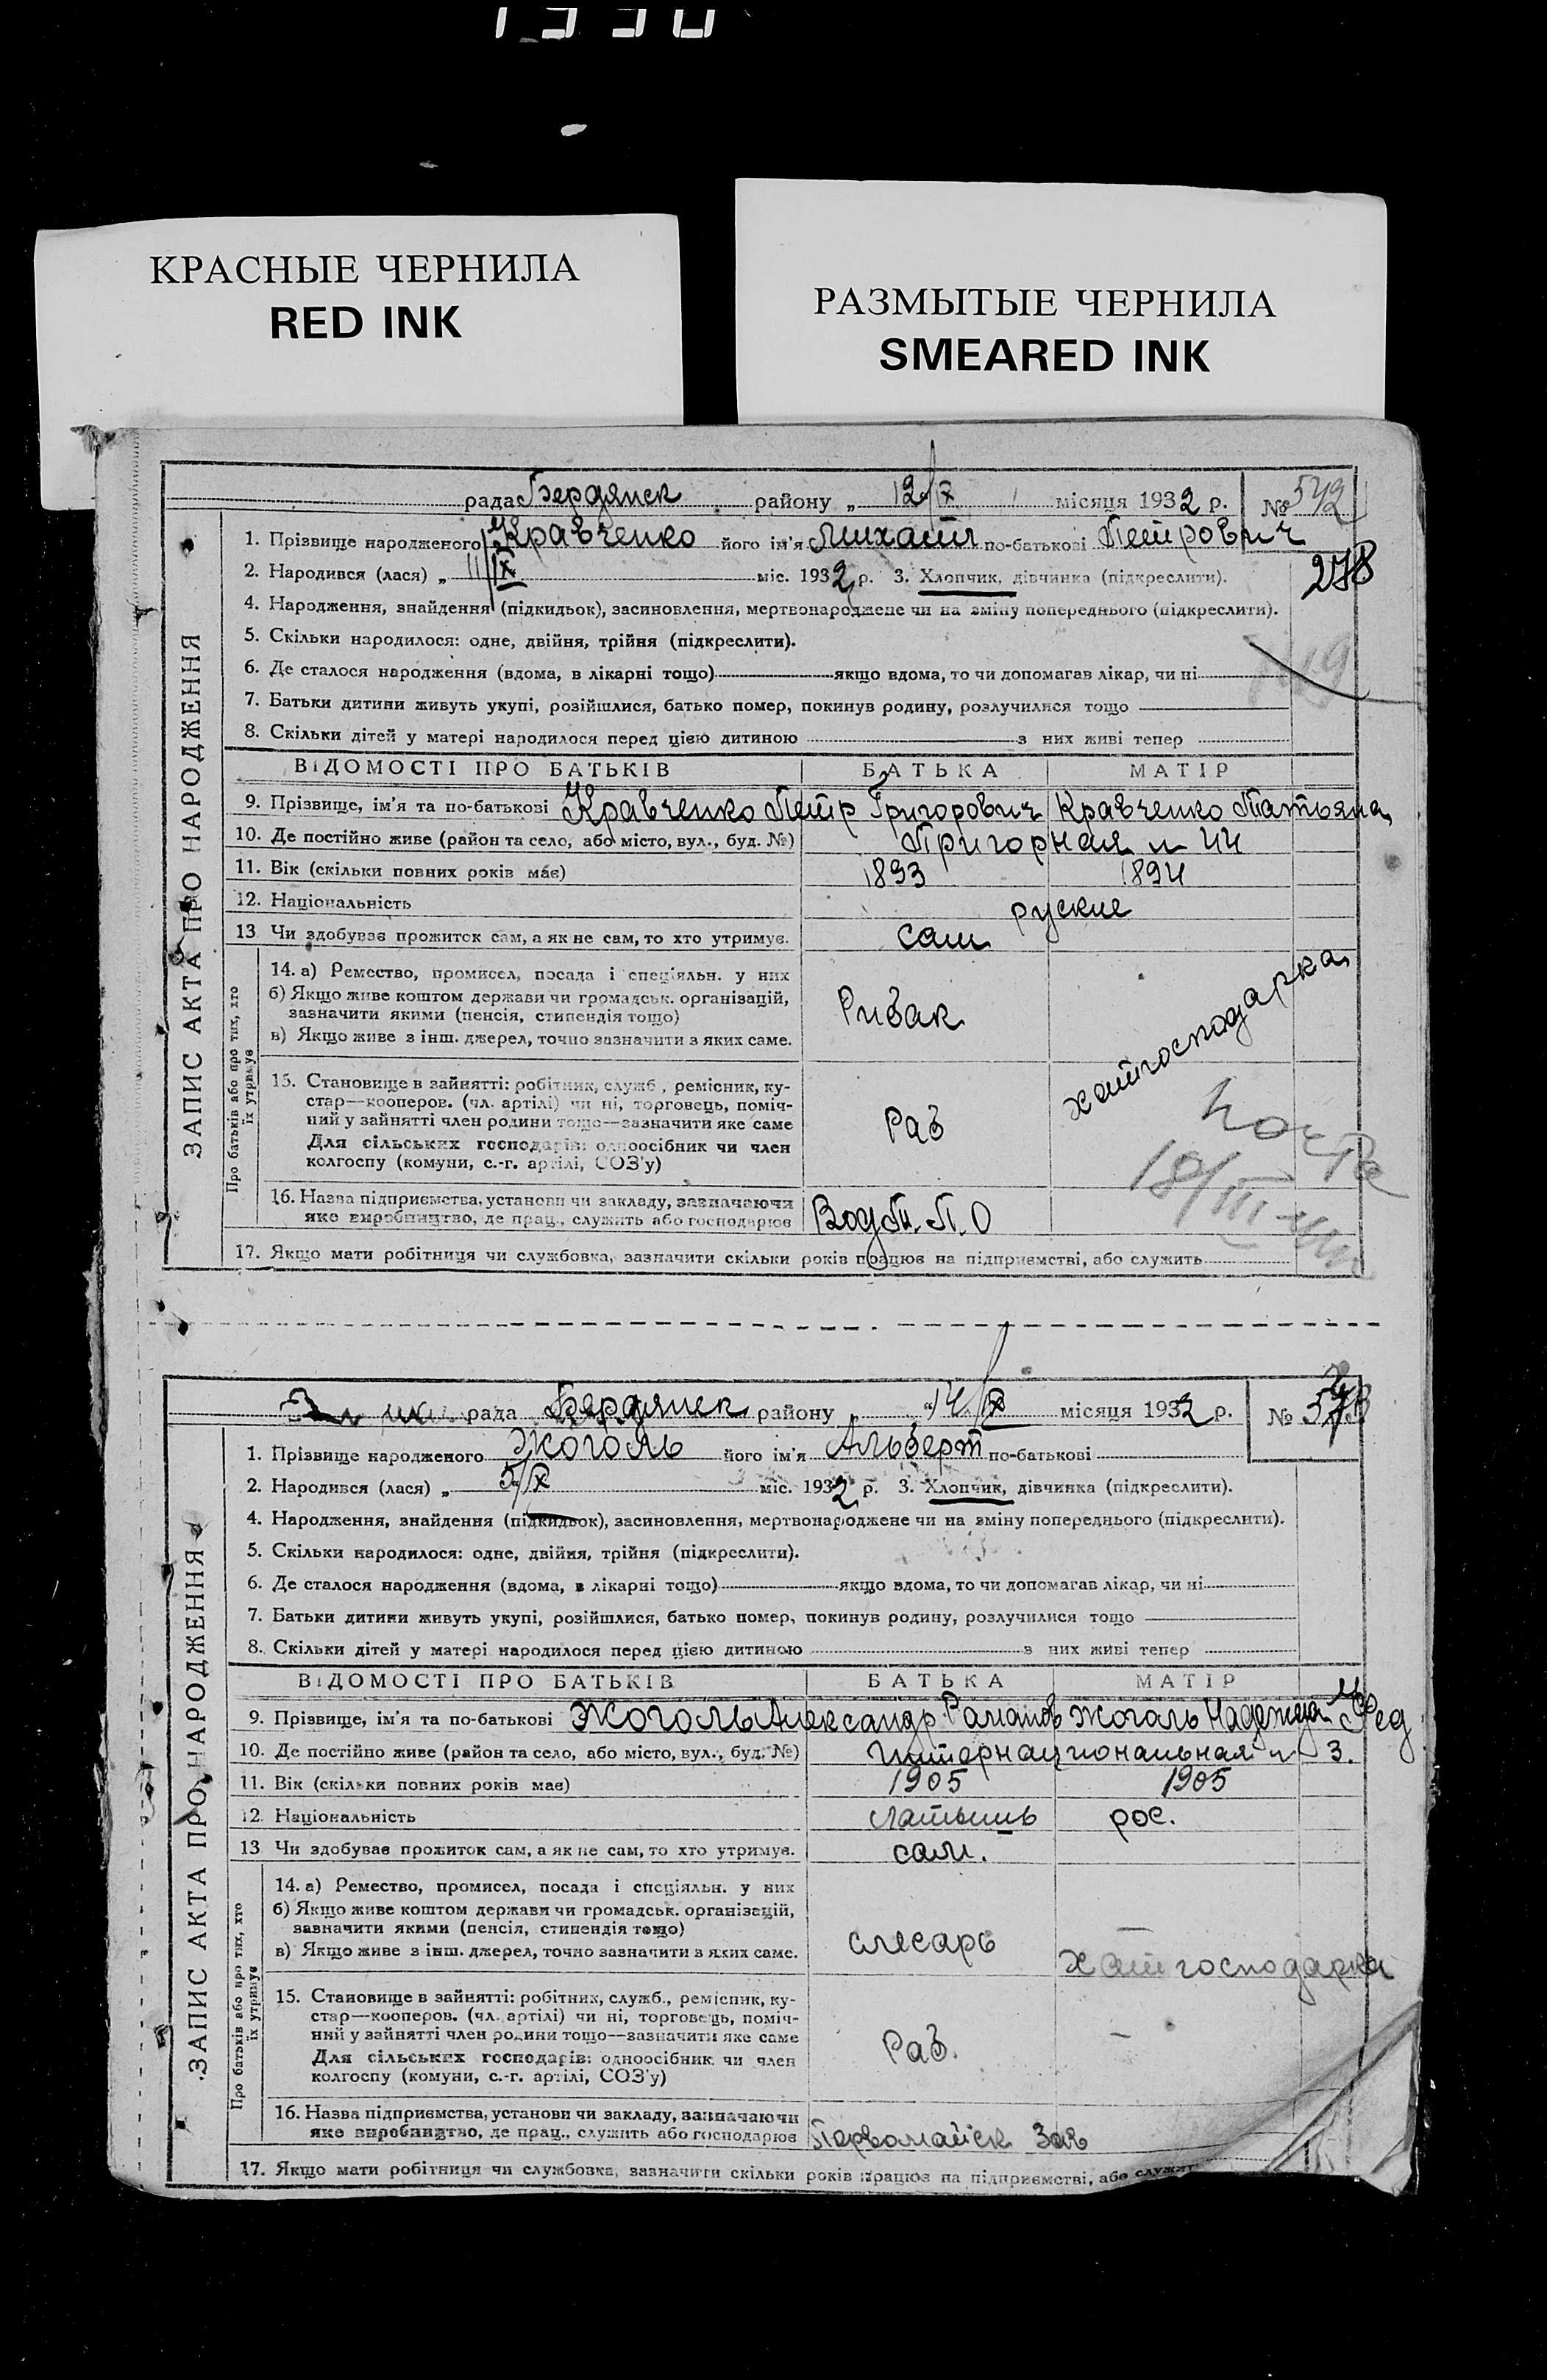 КРАСНЫЕ ЧЕРНИЛА
RED INK
РАЗМЫТЫЕ ЧЕРНИЛА
SMEARED INK
ЗАПИС АКТА ПРО НАРОДЖЕННЯ
рада Бердянск району „ 12/X місяця 1932 р. № 542
1. Прізвище народженого Кравченко його ім'я Михаил по-батькові Петрович
278
2. Народився (лася) „ 11/X міс. 1932 р. 3. Хлопчик, дівчинка (підкреслити).
4. Народження, знайдення (підкидьок), засиновлення, мертвонароджене чи на зміну попереднього (підкреслити).
5. Скільки народилося: одне, двійня, трійня (підкреслити).
6. Де сталося народження (вдома, в лікарні тощо) якщо вдома, то чи допомагав лікар, чи ні
7. Батьки дитини живуть укупі, розійшлися, батько помер, покинув родину, розлучилися тощо
8. Скільки дітей у матері народилося перед цією дитиною з них живі тепер
ВІДОМОСТІ ПРО БАТЬКІВ БАТЬКА МАТІР
9. Прізвище, ім'я та по-батькові Кравченко Петр Григорович Кравченко Татьяна
10. Де постійно живе (район та село, або місто, вул., буд. №) Пригорная 44
11. Вік (скільки повних років має) 1893 1894
12. Національність руские
13 Чи здобуває прожиток сам, а як не сам, то хто утримує. сам
Про батьків або про тих, хто їх утримує
14. а) Ремество, промисел, посада і спеціяльн. у них
б) Якщо живе коштом держави чи громадськ. організацій,
зазначити якими (пенсія, стипендія тощо)
в) Якщо живе з інш. джерел, точно зазначити з яких саме.
Рибак хатгосподарка
15. Становище в зайнятті: робітник, служб., ремісник, ку-
стар—кооперов. (чл. артілі) чи ні, торговець, поміч-
ний у зайнятті член родини тощо—зазначити яке саме
Для сільських господарів: одноосібник чи член
колгоспу (комуни, с.-г. артілі, СОЗ'у)
Раб
18/III
16. Назва підприємства, установи чи закладу, зазначаючи
яке виробництво, де прац., служить або господарює
17. Якщо мати робітниця чи службовка, зазначити скільки років працює на підприємстві, або служить
ЗАПИС АКТА ПРО НАРОДЖЕННЯ
рада Бердянск району „ 14/X місяця 1932 р. №
1. Прізвище народженого Жоголь його ім'я Альберт по-батькові
2. Народився (лася) „ 5/X міс. 1932 р. 3. Хлопчик, дівчинка (підкреслити).
4. Народження, знайдення (підкидьок), засиновлення, мертвонароджене чи на зміну попереднього (підкреслити).
5. Скільки народилося: одне, двійня, трійня (підкреслити).
6. Де сталося народження (вдома, в лікарні тощо) якщо вдома, то чи допомагав лікар, чи ні
7. Батьки дитини живуть укупі, розійшлися, батько помер, покинув родину, розлучилися тощо
8. Скільки дітей у матері народилося перед цією дитиною з них живі тепер
ВІДОМОСТІ ПРО БАТЬКІВ БАТЬКА МАТІР
9. Прізвище, ім'я та по-батькові Жоголь Александр Романов Жоголь Надежда Фед
10. Де постійно живе (район та село, або місто, вул., буд. №) Интернациональная 3.
11. Вік (скільки повних років має) 1905 1905
12. Національність латышь рос.
13 Чи здобуває прожиток сам, а як не сам, то хто утримує. сам.
Про батьків або про тих, хто їх утримує
14. а) Ремество, промисел, посада і спеціяльн. у них
б) Якщо живе коштом держави чи громадськ. організацій,
зазначити якими (пенсія, стипендія тощо)
в) Якщо живе з інш. джерел, точно зазначити з яких саме.
слесарь хатгосподарка
15. Становище в зайнятті: робітник, служб., ремісник, ку-
стар—кооперов. (чл. артілі) чи ні, торговець, поміч-
ний у зайнятті член родини тощо—зазначити яке саме
Для сільських господарів: одноосібник чи член
колгоспу (комуни, с.-г. артілі, СОЗ'у)
Раб.
16. Назва підприємства, установи чи закладу, зазначаючи
яке виробництво, де прац., служить або господарює Первомайск Зав
17. Якщо мати робітниця чи службовка, зазначити скільки років працює на підприємстві, або служить